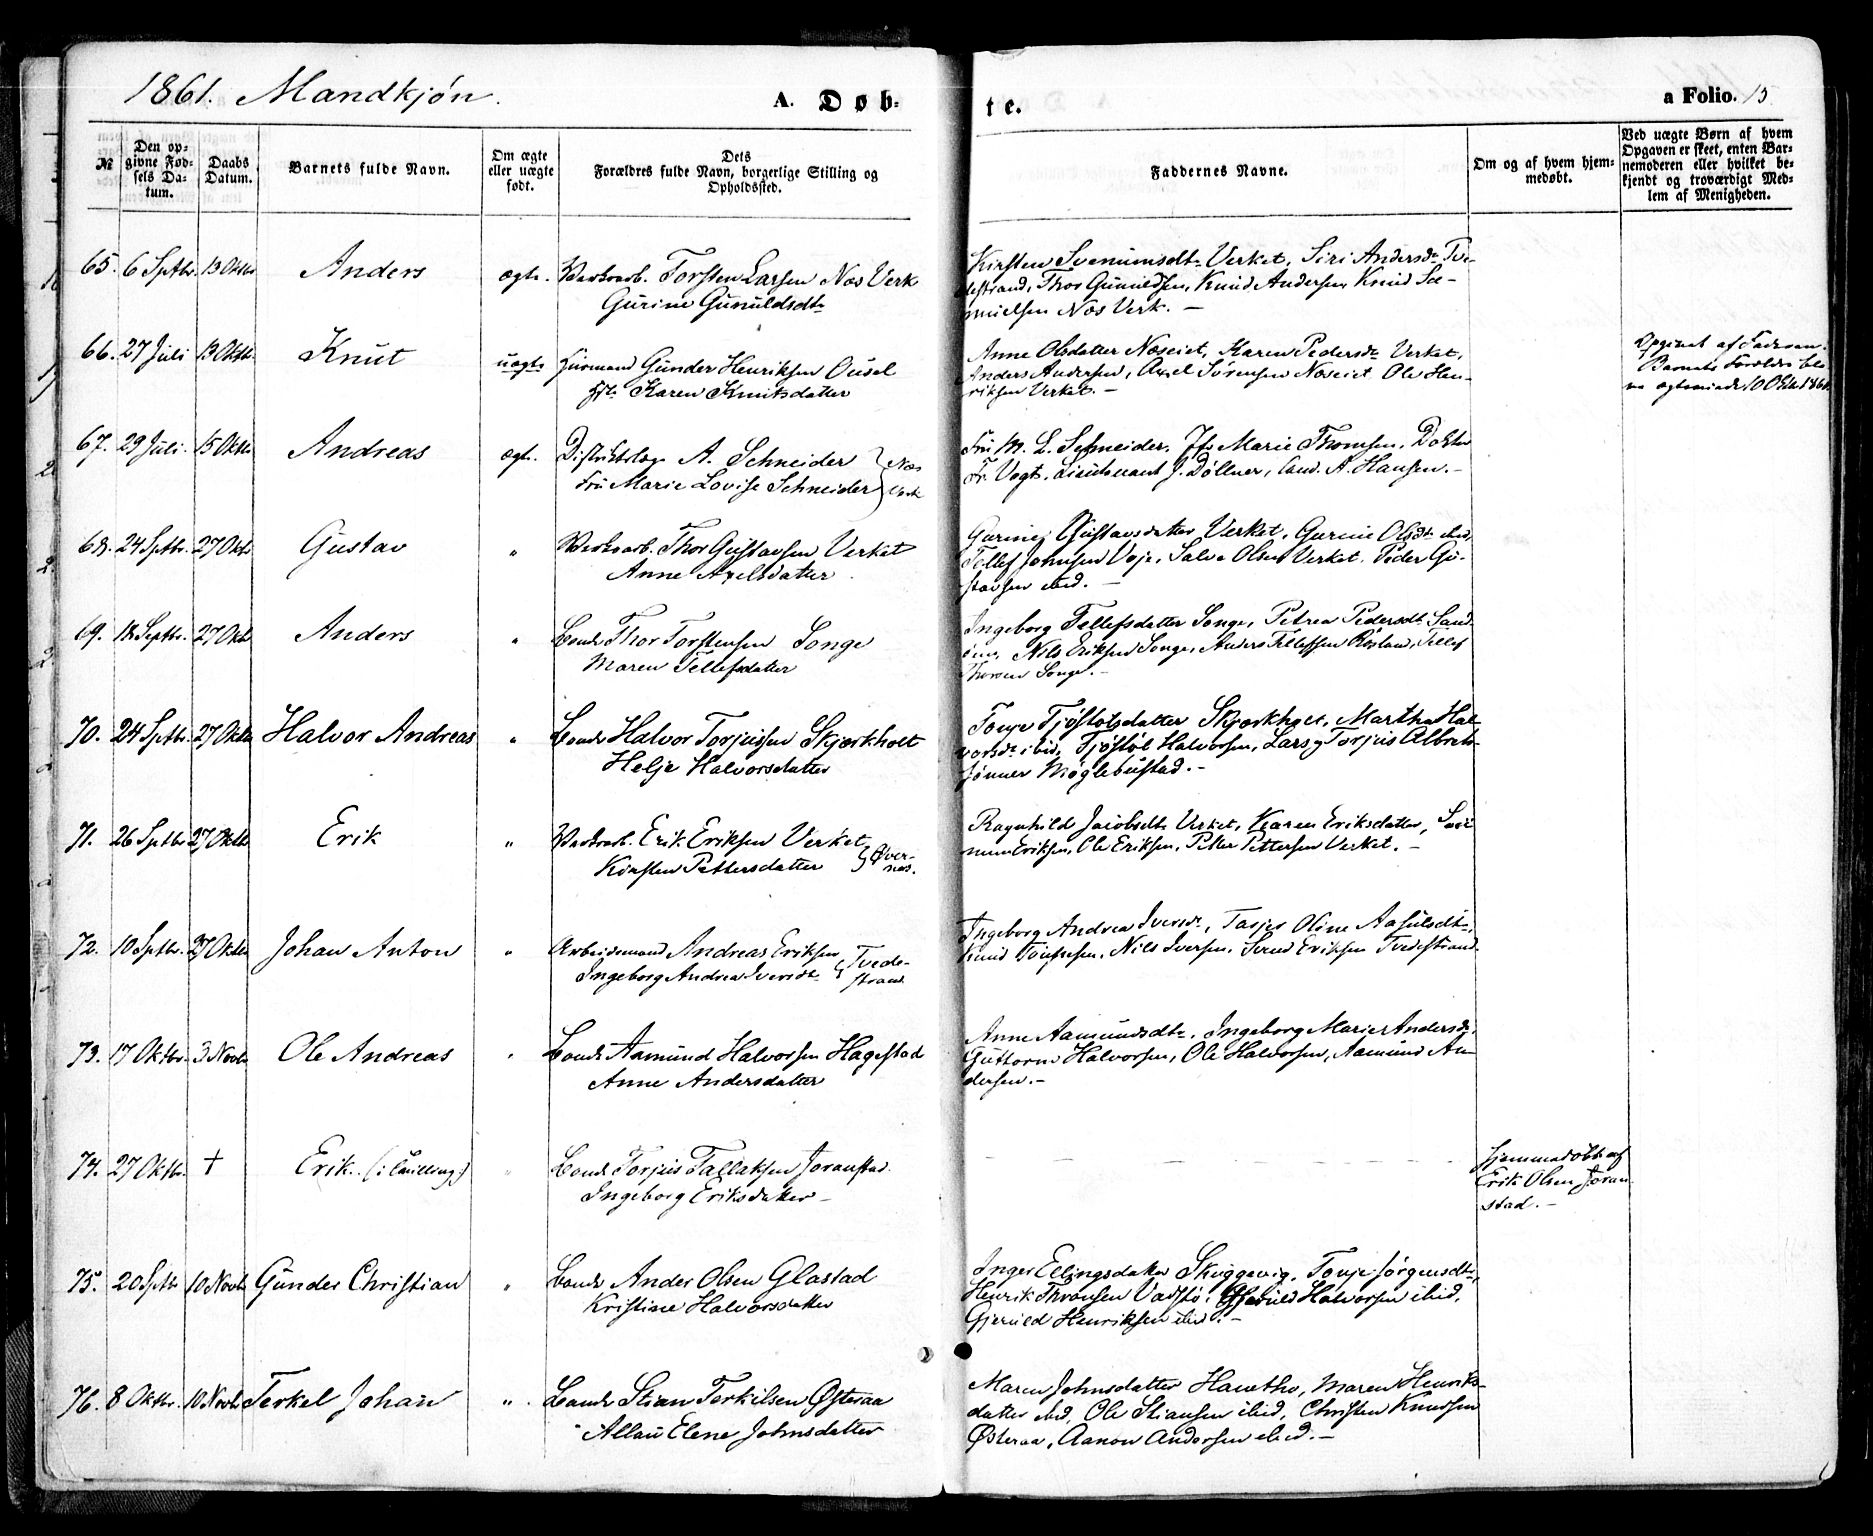 1861. Mandkjón.
A. Døb-
te.
a Folio. 15
№
Den op-
givne Fød-
sels Da-
tum.
Daabs
Datum.
Barnets fulde Navn.
Om ægte
eller uægte
født.
Dets
Forældres fulde Navn, borgerlige Stilling og
Opholdssted.
Faddernes Navne.
Om og af hvem hjem-
medøbt.
Ved uægte Børn af hvem
Opgaven er skeet, enten Bar-
nemoderen eller hvilket be-
kjendt og troværdigt Med-
lem af Menigheden.
65. 6 Septbr. 13 Oktbr Anders ægte. Verksarb. Torsten Larsen Næs Verk
Gurine Gunuldsdtr
Kirsten Svenumsdtr Verket, Siri Andersdr Tve-
destrand, Thor Gunuldsen, Knud Andersen, Knud Sa-
muelsen Næs Verk. –
66. 27 Juli 13 Oktbr. Knut uægte Gunder Henriksen Ousel
Karen Knutsdatter
Anne Olsdatter Næseiet, Karen Pedersdr Verket,
Anders Andersen, Axel Sörensen Næseiet, Ole Hen-
riksen Verket. –
Opgivet af Faderen.
Barnets Forældre ble-
ve ægteviede 10 Oktb. 1861.
67. 29 Juli. 15 Oktbr Andreas ægte. Distriktslæge A. Schneider
Fru Marie Lovise Schneider } Næs Verk
Fru M. L. Schneider, Jfr Marie Thomsen, Doktor
Fr. Vogt, Lieutenant J. Döllner, Cand. A. Hansen. –
68. 24 Septbr. 27 Oktbr Gustav " Verksarb. Thor Gustavsen Verket
Anne Axelsdatter.
Gustavsdatter Verket, Gurine Olsdtr ibid,
Tellef Jomsen Voje, Salve Olsen Verket, Peder Gu-
stavsen ibid. –
69. 18 Septbr. 27 Oktb Anders " Bonde Thor Torstensen Songe
Maren Tellefsdatter
Ingeborg Tellefsdatter Songe, Petrea Pedersdtr Sand-
Nils Eriksen Songe, Anders Tellefsen Röstad, Tellef
Thorsen Songe. –
70. 24 Septbr. 27 Oktbr Halvor Andreas " Bonde Halvor Torjussen Skjerkholt
Helje Halvorsdatter
Tonje Tjöstolsdatter Skjerkholt, Martha Hal-
vorsdr ibid, Tjöstöl Halvorsen, Lars og Torjus Albrets-
sönner Möglebustad. –
71. 26 Septbr 27 Oktbr Erik " Verksarb. Erik Eriksen Verket
Kirsten Pettersdatter } Øver-
næs.
Ragnhild Jacobsdtr Verket, Karen Eriksdatter,
Eriksen, Ole Eriksen, Petter Pettersen Verket. –
72. 10 Septbr. 27 Oktbr Johan Anton " Arbeidsmand Andreas Eriksen
Ingeborg Andrea Iversdr } Tvede-
strand
Ingeborg Andrea Iversdr, Oline Aasulsdtr,
Knud Nils Iversen, Svend Eriksen Tvedestrand.
73. 17 Oktbr. 3 Novbr Ole Andreas " Bonde Aamund Halvorsen Hagestad
Anne Andersdatter
Anne Aamundsdtr, Ingeborg Marie Andersdr,
Guttorm Halvorsen, Ole Halvorsen, Aamund An-
dersen. –
74. 27 Oktbr. † Erik. (: Tvilling :) " Bonde Torjus Tallaksen Joranstad.
Ingeborg Eriksdatter –
Hjemmedöbt af
Erik Olsen Joran-
stad. –
75. 20 Septbr 10 Novbr Gunder Christian " Bonde Ander Olsen Glastad
Kristine Halvorsdatter
Inger Ellingsdatter Skuggevig, Tonje Jörgensdtr,
Henrik Thronsen Vadstö, Gjeruld Halvorsen ibid,
Gjeruld Henriksen ibid. –
76. 8 Oktbr. 10 Novbr. Terkel Johan " Bonde Stian Terkilsen Østeraa
Allau Elene Johnsdatter
Maren Johnsdatter Hantho, Maren Henriks-
datter ibid, Ole Stiansen ibid, Christen Knudsen
Østeraa, Aanon Andersen ibid. –